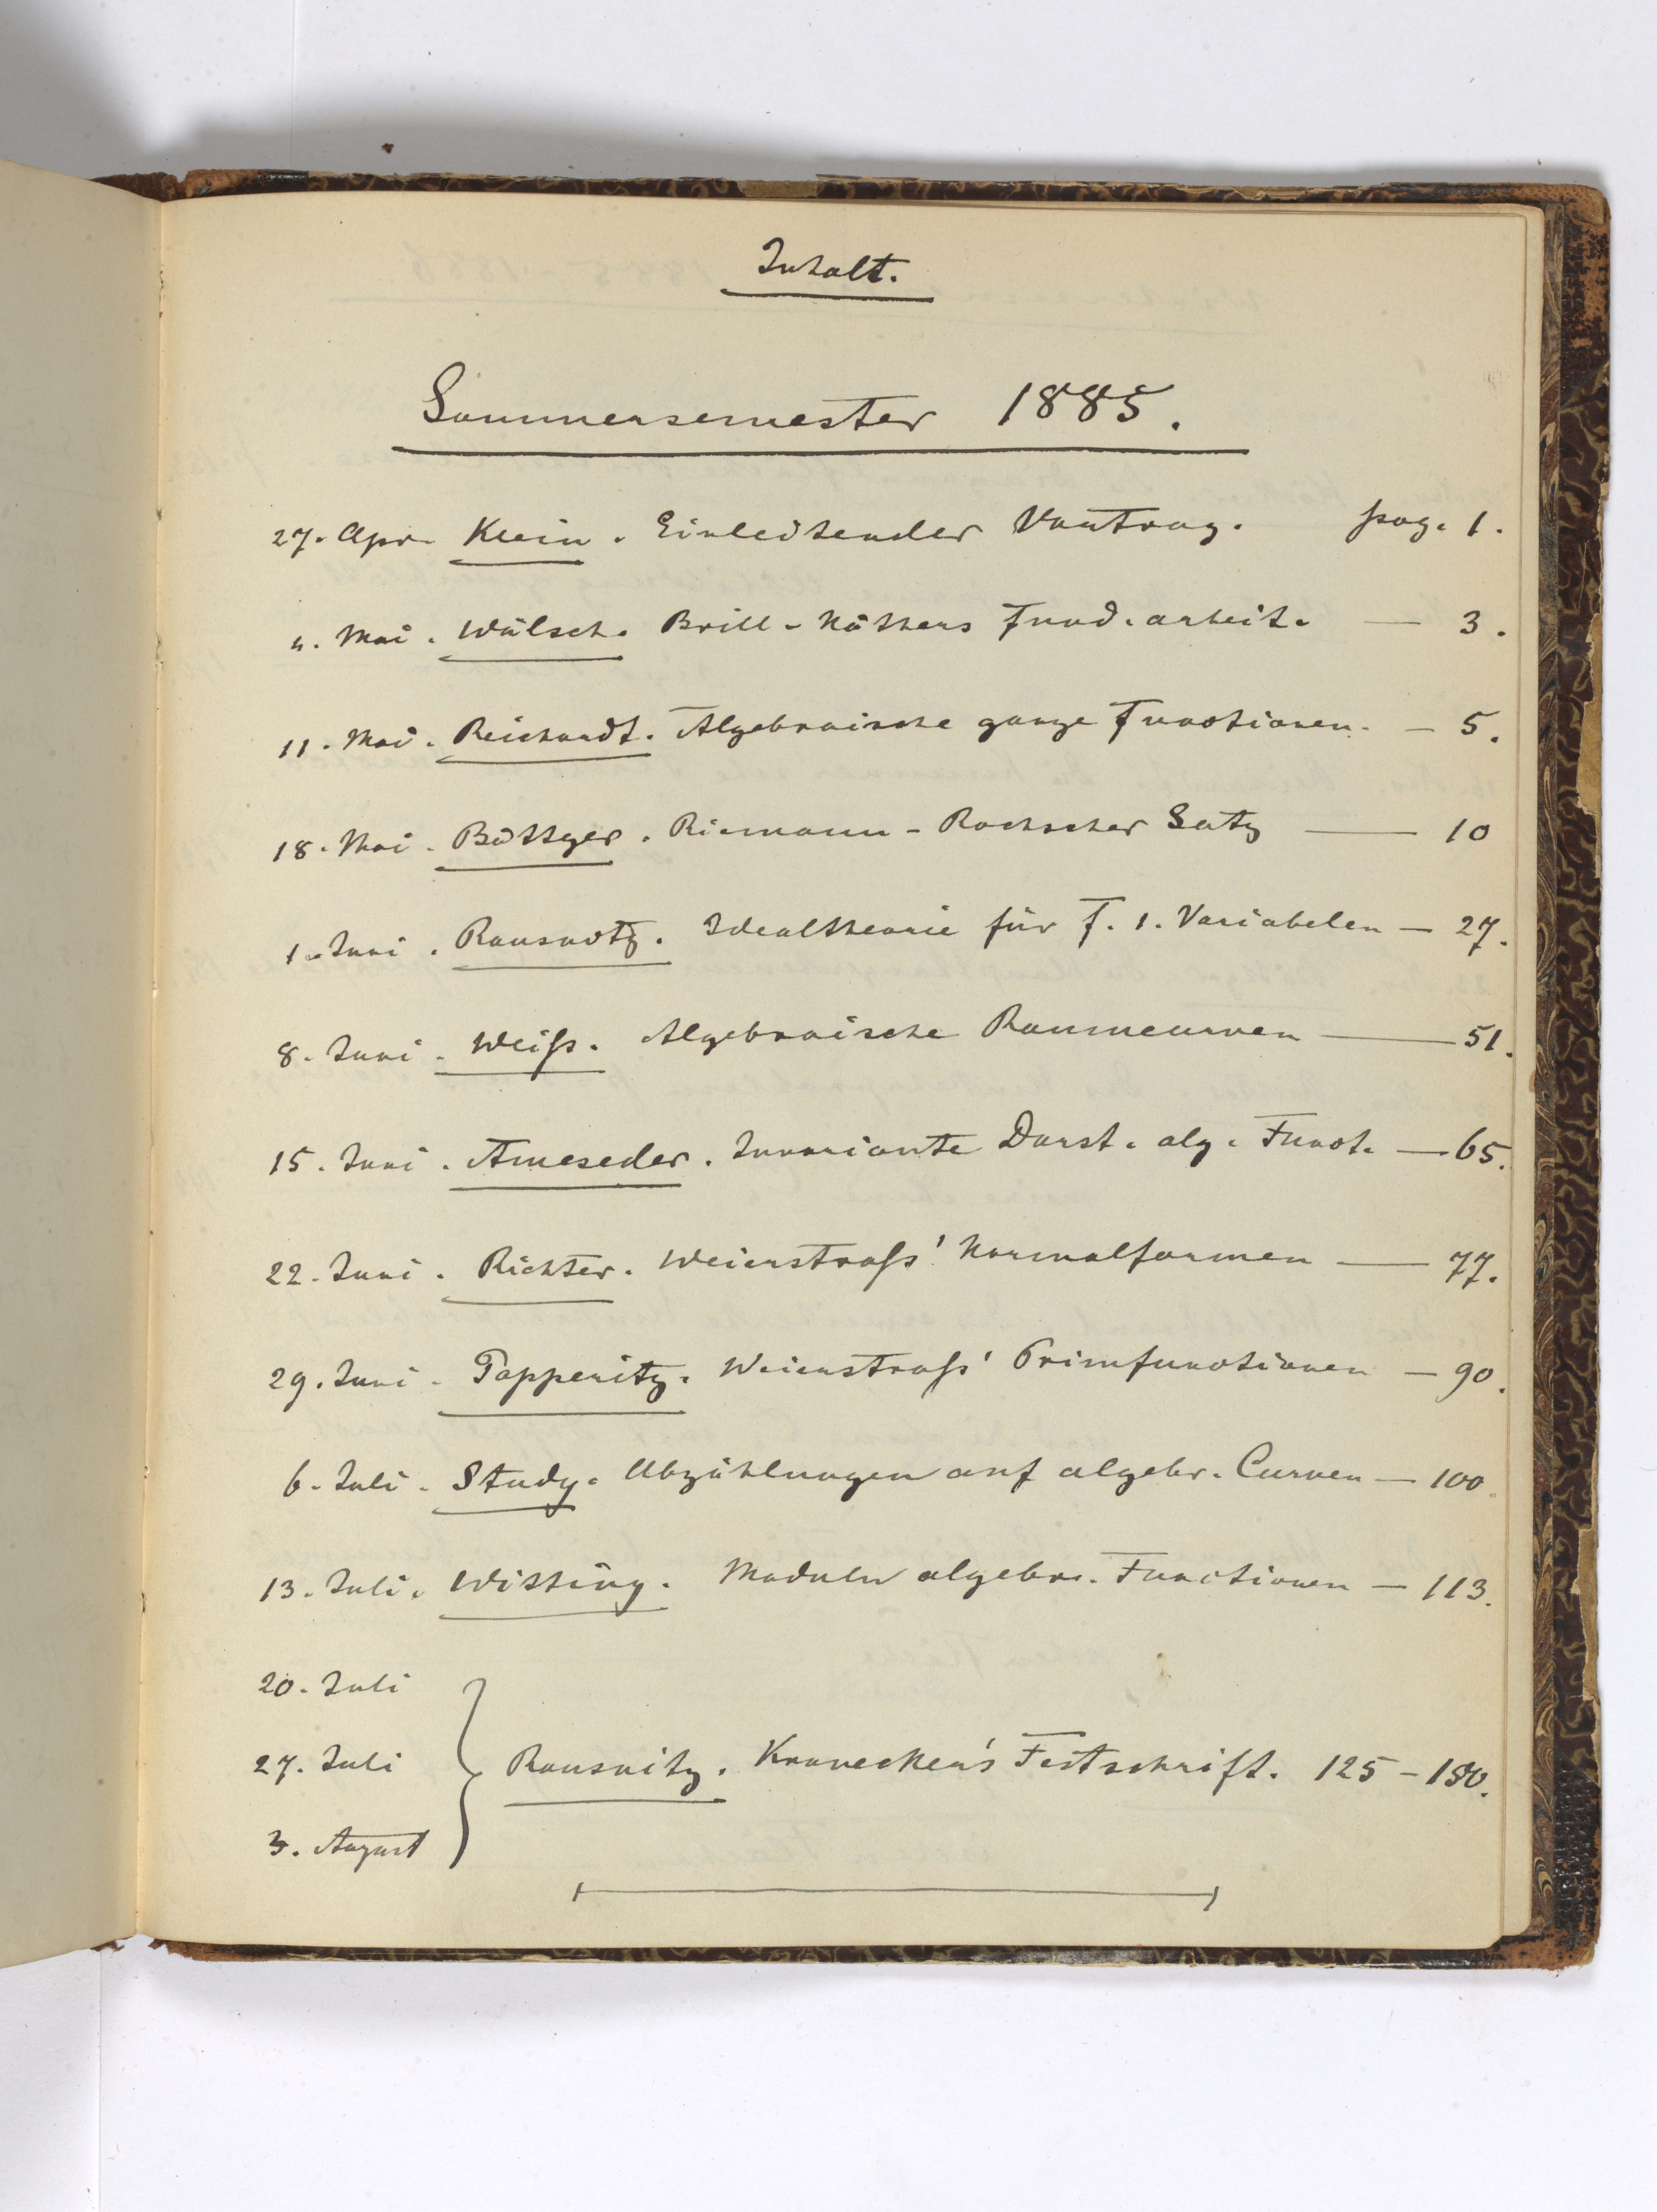 Inhalt.
Sommersemester 1885.
27. Apr. Klein. Einleitender Vortrag. pag. 1.
4. Mai. Wälsch. Brill-Nöthers Fund. arbeit. — 3.
11. Mai. Reichardt. Algebraische ganze Functionen. — 5.
18. Mai. Böttger. Riemann-Rochscher Satz — 10
1. Juni. Rausnitz. Idealtheorie für F. 1. Variabelen — 27.
8. Juni. Weiſs. Algebraische Raumcurven — 51.
15. Juni. Ameseder. Invariante Darst. alg. Funct. — 65.
22. Juni. Richter. Weierstraſs' Normalformen — 77.
29. Juni. Papperitz. Weierstraſs' Primfunctionen — 90.
6. Juli. Study. Abzählungen auf algebr. Curven — 100.
13. Juli. Witting. Moduln algebr. Functionen — 113.
20. Juli
27. Juli Rausnitz. Kronecker's Festschrift. 125 –
3. August